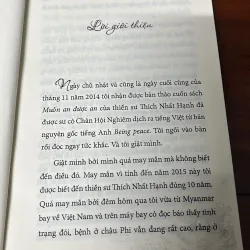 Lời giới thiệu
Ngày chủ nhật và cũng là ngày cuối cùng của
tháng 11 năm 2014 tôi nhận được bản thảo cuốn sách
Muốn an được an của thiền sư Thích Nhất Hạnh đã
được sư cô Chân Hội Nghiêm dịch ra tiếng Việt từ bản
nguyên gốc tiếng Anh Being peace. Tôi ngồi vào bàn
rồi đọc ngay tức khắc. Và tôi giật mình.
Giật mình bởi mình quá may mắn mà không biết
đến điều đó. May mắn vì tính đến năm 2015 này tôi
được biết đến thiền sư Thích Nhất Hạnh đúng 10 năm.
Quá may mắn bởi đêm hôm qua tôi vừa từ Myanmar
bay về Việt Nam và trên máy bay có đọc báo thấy tình
trạng đói, bệnh ở châu Phi vẫn đang rất cao, rằng ở